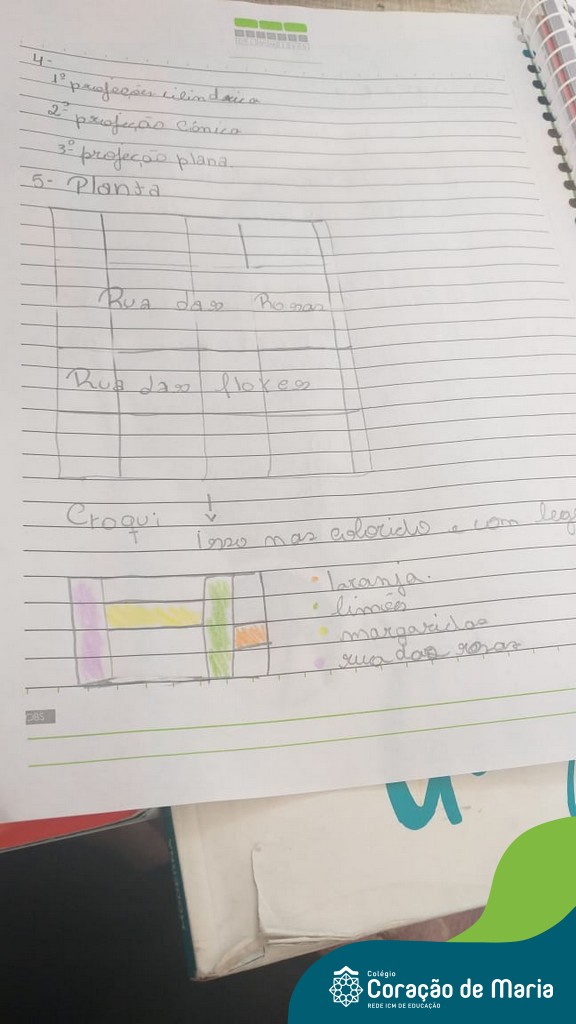 4-
1º projeções cilindrica
2º projeção cônica
3º projeção plana.
5- Planta
Rua das Rosas
Rua das flores
Croqui
↓
isso mas colorido e com leg
• laranja.
• limões
• margaridas
• rua das rosas
OBS
Colégio
Coração de Maria
REDE ICM DE EDUCAÇÃO